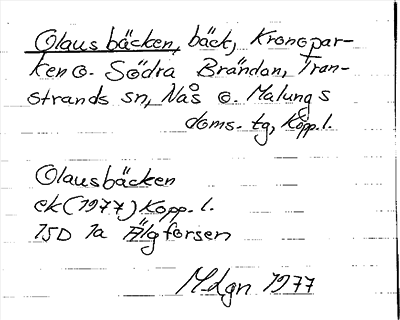 Olausbäcken, bäck, Kronopar-
ken o. Södra Brändan, Tran-
strands sn, Nås o. Malungs
doms. tg, Kopp. l.
Olausbäcken
ek (1977) Kopp. l.
15D 1a Älgforsen
MLgn 1977